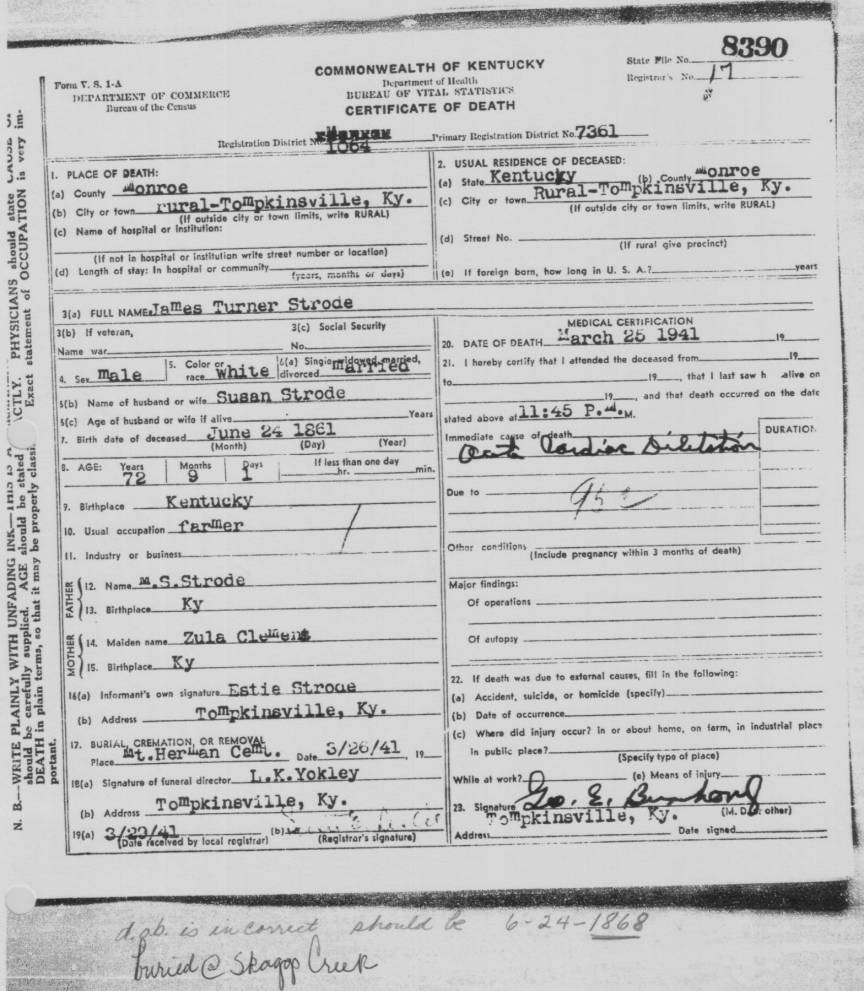 8390
COMMONWEALTH OF KENTUCKY
Department of Health
BUREAU OF VITAL STATISTICS
CERTIFICATE OF DEATH
Form V. S. 1-A
DEPARTMENT OF COMMERCE
Bureau of the Census
State File No.
Registrar's No. 17
Registration District No. 1064 Primary Registration District No. 7361
1. PLACE OF DEATH:
(a) County Monroe
(b) City or town rural-Tompkinsville, Ky.
(If outside city or town limits, write RURAL)
(c) Name of hospital or institution:
(If not in hospital or institution write street number or location)
(d) Length of stay: In hospital or community
(years, months or days)
2. USUAL RESIDENCE OF DECEASED:
(a) State Kentucky (b) County Monroe
(c) City or town Rural-Tompkinsville, Ky.
(If outside city or town limits, write RURAL)
(d) Street No.
(If rural give precinct)
(e) If foreign born, how long in U. S. A.? years
3(a) FULL NAME James Turner Strode
3(b) If veteran,
Name war
3(c) Social Security
No.
4. Sex male
5. Color or
race White
6(a) Single, widowed, married,
divorced married
6(b) Name of husband or wife Susan Strode
6(c) Age of husband or wife if alive Years
7. Birth date of deceased June 24 1861
(Month) (Day) (Year)
8. AGE: Years Months Days If less than one day
72 9 1 hr. min.
9. Birthplace Kentucky
10. Usual occupation farmer
11. Industry or business
FATHER
12. Name M.S.Strode
13. Birthplace Ky
MOTHER
14. Maiden name Zula Clement
15. Birthplace Ky
16(a) Informant's own signature Estie Strode
(b) Address Tompkinsville, Ky.
17. BURIAL, CREMATION, OR REMOVAL
Place Mt.Herman Cemt. Date 3/26/41 19
18(a) Signature of funeral director L.K.Yokley
(b) Address Tompkinsville, Ky.
19(a) 3/29/41 (b)
(Date received by local registrar) (Registrar's signature)
MEDICAL CERTIFICATION
20. DATE OF DEATH March 25 1941 19
21. I hereby certify that I attended the deceased from 19
to 19 , that I last saw h alive on
19 , and that death occurred on the date
stated above at 11:45 P.M. M.
Immediate cause of death DURATION
Acute Cardiac Diletation
Due to
Other conditions
(Include pregnancy within 3 months of death)
Major findings:
Of operations
Of autopsy
22. If death was due to external causes, fill in the following:
(a) Accident, suicide, or homicide (specify)
(b) Date of occurrence
(c) Where did injury occur? in or about home, on farm, in industrial place
in public place?
(Specify type of place)
While at work? (e) Means of injury
23. Signature Geo. E. Bushong
Tompkinsville, Ky. (M. D. or other)
Address Date signed
N. B.—WRITE PLAINLY WITH UNFADING INK—THIS IS A
should be carefully supplied. AGE should be stated EXACTLY. PHYSICIANS should state CAUSE OF
DEATH in plain terms, so that it may be properly classi Exact statement of OCCUPATION is very im-
portant.
d.ob. is incorrect should be 6-24-1868
buried @ Skaggs Creek